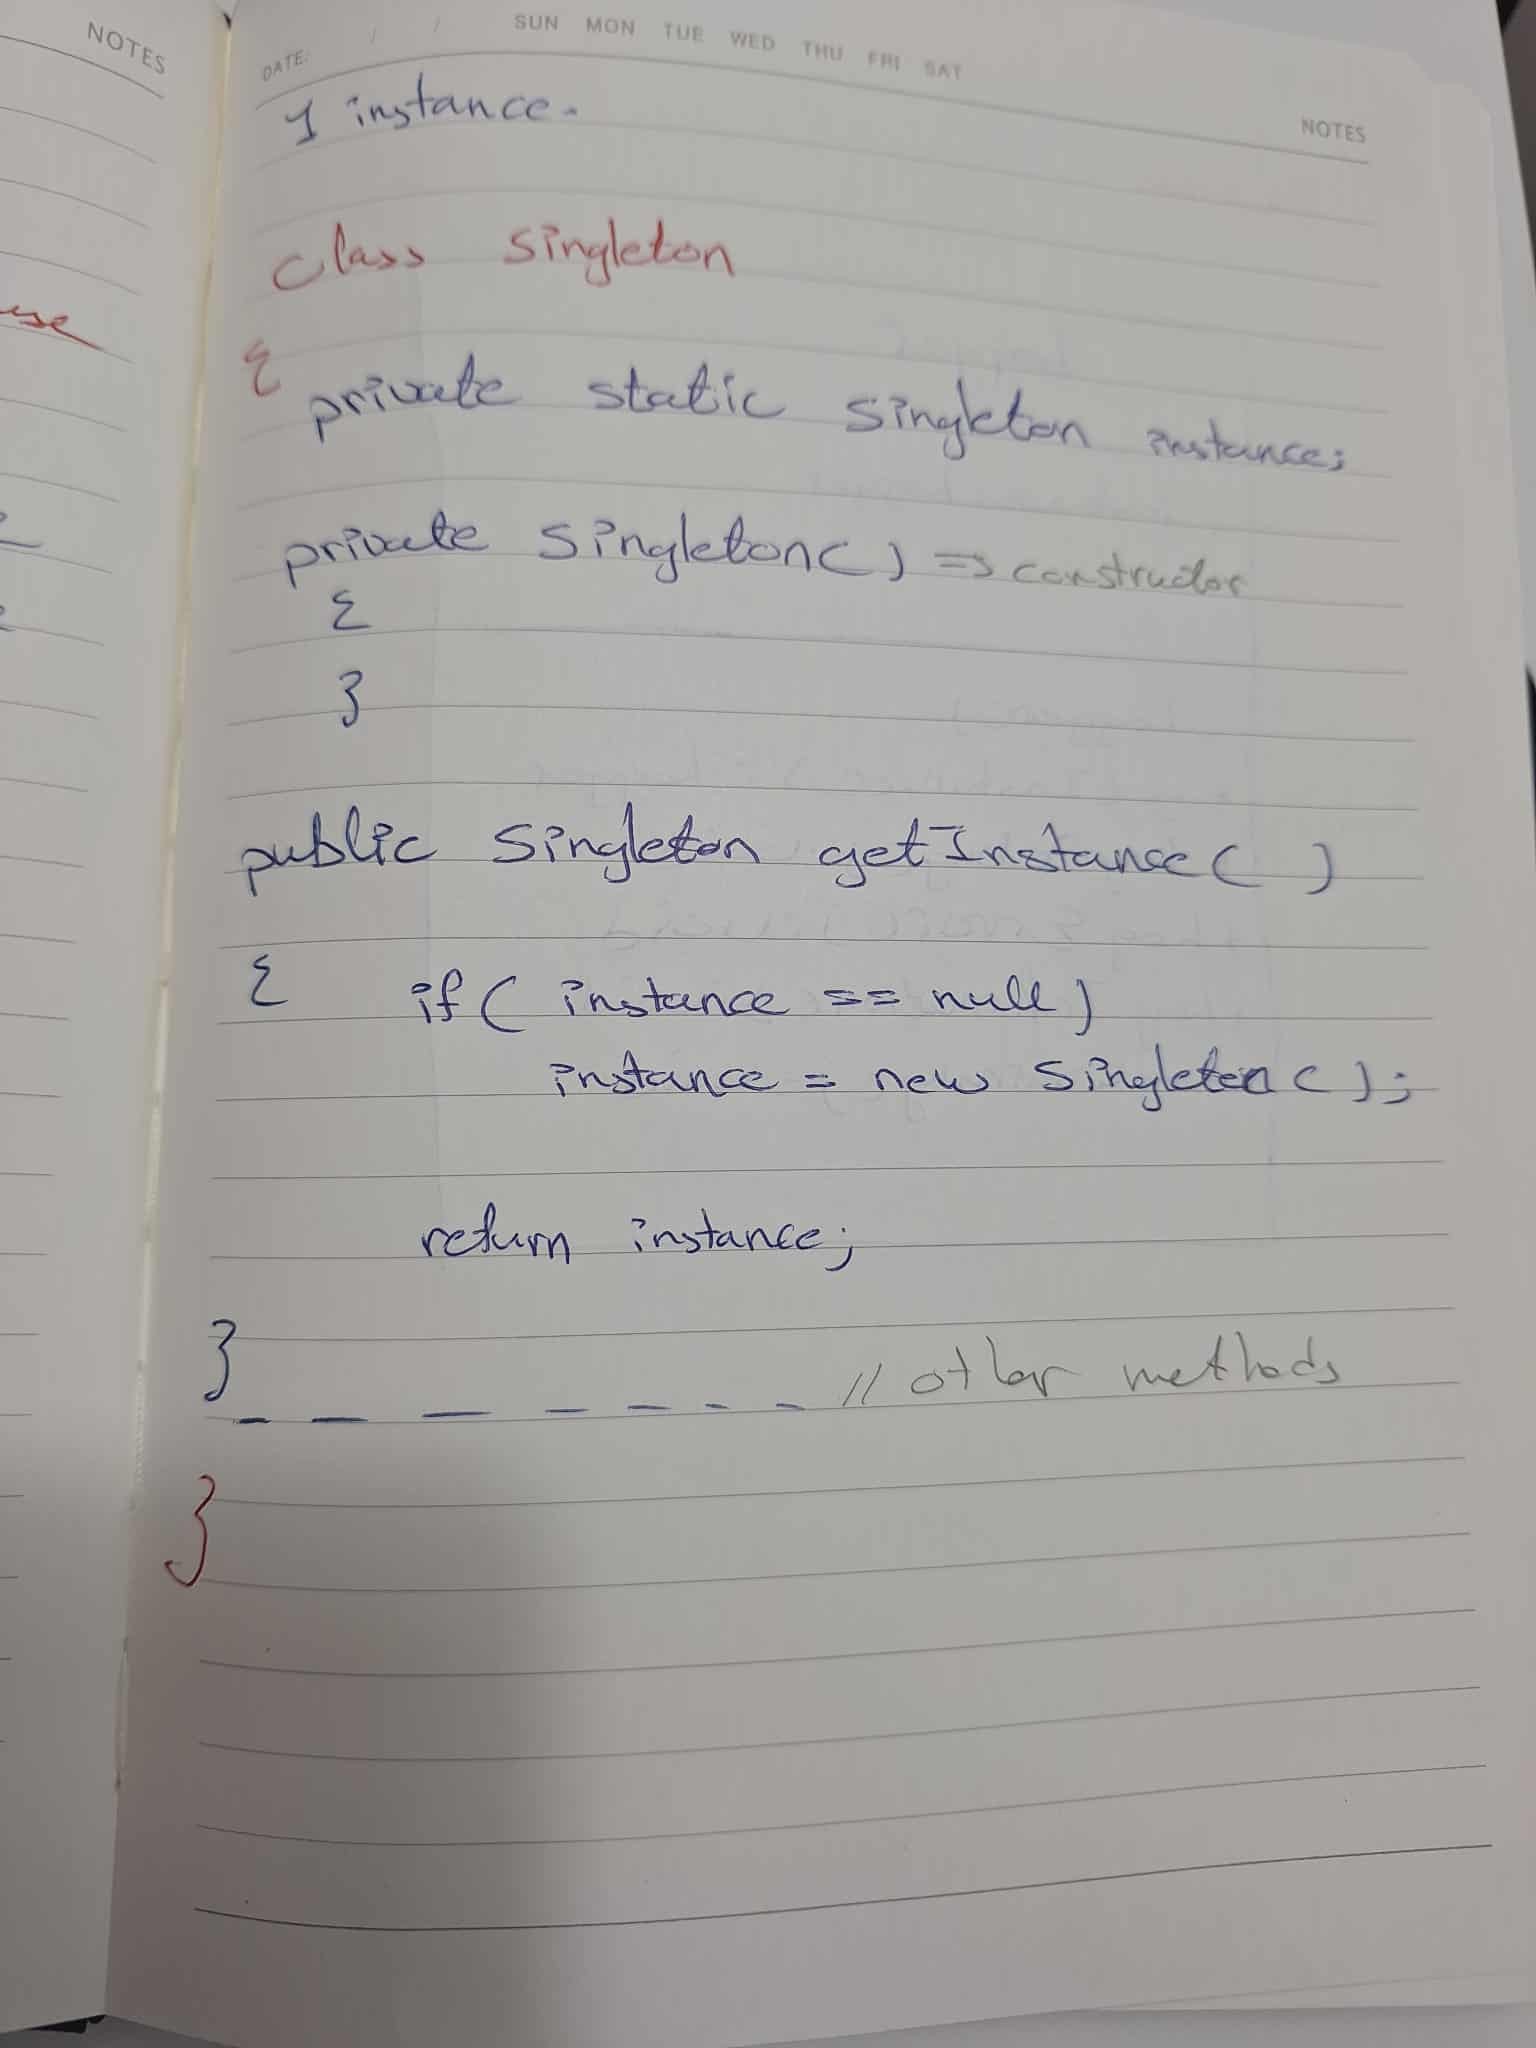 NOTES
DATE: / / SUN MON TUE WED THU FRI SAT
NOTES
1 instance.
class Singleton
{
private static Singleton instance;
private Singleton() => constructor
{
}
public Singleton getInstance( )
{ if( instance == null)
instance = new Singleton();
return instance;
}
_ _ _ _ _ _ _ // other methods
}